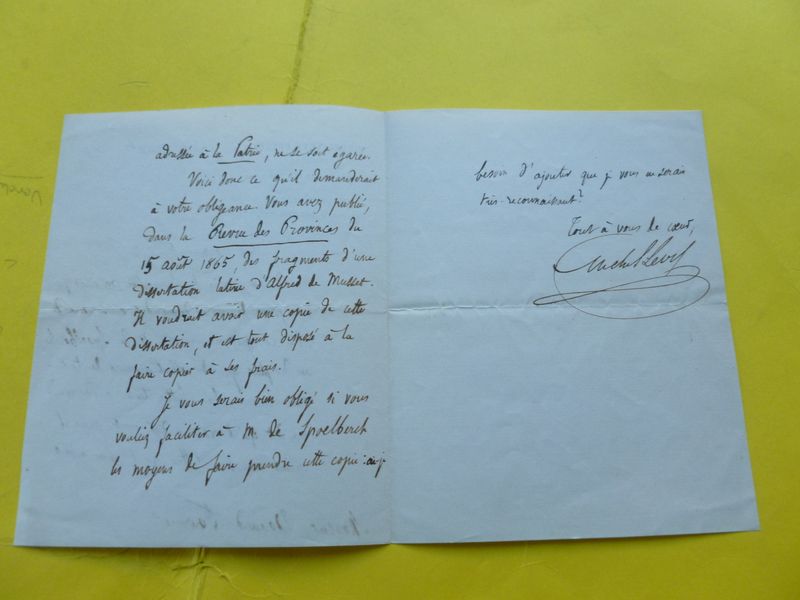 adressée à la Patrie, ne se soit égarée.
Voici donc ce qu'il demanderait
à votre obligeance. Vous avez publié,
dans la Revue des Provinces du
15 août 1865, des fragments d'une
dissertation latine d'Alfred de Musset.
Il voudrait avoir une copie de cette
dissertation, et est tout disposé à la
faire copier à ses frais.
Je vous serais bien obligé si vous
vouliez faciliter à M. de Spoelberch
les moyens de faire prendre cette copie : ai-je
besoin d'ajouter que je vous en serais
très-reconnaissant?
Tout à vous de cœur,
Michel Lévy